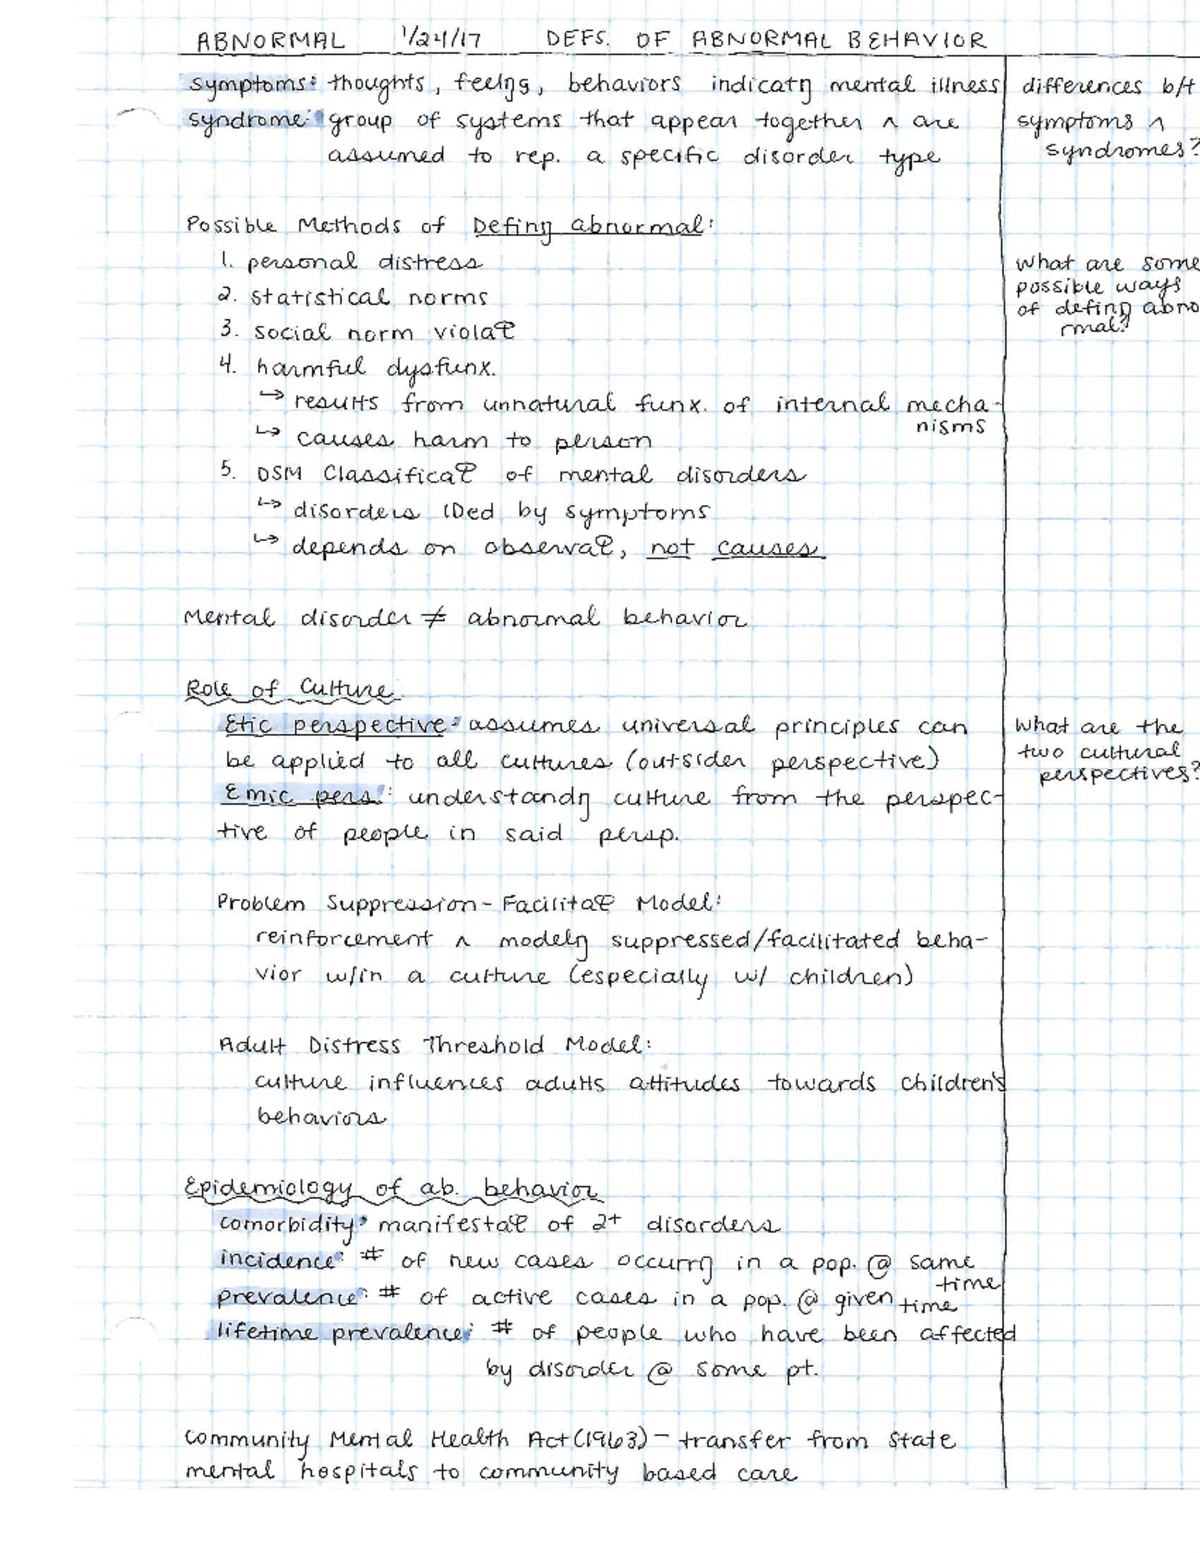 ABNORMAL 1/24/17 DEFS. OF ABNORMAL BEHAVIOR
symptoms: thoughts, feelings, behaviors indicatg mental illness
syndrome: group of systems that appear together ∧ are
assumed to rep. a specific disorder type
differences b/t
symptoms ∧
syndromes?
Possible Methods of Defing abnormal:
1. personal distress
2. statistical norms
3. social norm violat
4. harmful dysfunx.
↳ results from unnatural funx. of internal mecha-
nisms
↳ causes harm to person
5. DSM Classificat of mental disorders
↳ disorders IDed by symptoms
↳ depends on observat, not causes
What are some
possible ways
of defing abno
rmal?
Mental disorder ≠ abnormal behavior
Role of Culture
Etic perspective: assumes universal principles can
be applied to all cultures (outsider perspective)
Emic pers.: understandg culture from the perspec-
tive of people in said persp.
What are the
two cultural
perspectives?
Problem Suppression-Facilitat Model:
reinforcement ∧ modelg suppressed/facilitated beha-
vior w/in a culture (especially w/ children)
Adult Distress Threshold Model:
culture influences adults attitudes towards children's
behaviors
Epidemiology of ab. behavior
comorbidity: manifestat of 2+ disorders
incidence: # of new cases occurrg in a pop. @ same
time
prevalence: # of active cases in a pop. @ given time
lifetime prevalence: # of people who have been affected
by disorder @ some pt.
Community Mental Health Act (1963) – transfer from state
mental hospitals to community based care